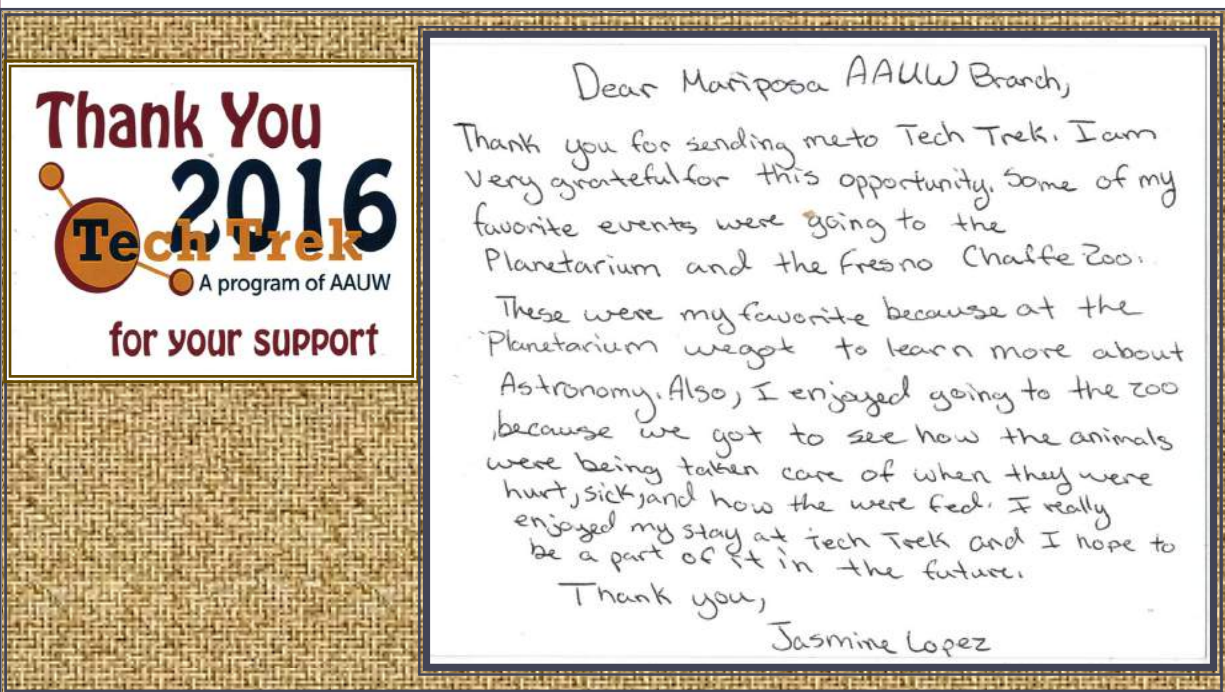 Thank You
2016
Tech Trek
A program of AAUW
for your support
Dear Mariposa AAUW Branch,
Thank you for sending me to Tech Trek. I am
very grateful for this opportunity. Some of my
favorite events were going to the
Planetarium and the Fresno Chaffe Zoo.
These were my favorite because at the
Planetarium we got to learn more about
Astronomy. Also, I enjoyed going to the zoo
,because we got to see how the animals
were being taken care of when they were
hurt, sick, and how the were fed. I really
enjoyed my stay at Tech Trek and I hope to
be a part of it in the future.
Thank you,
Jasmine Lopez